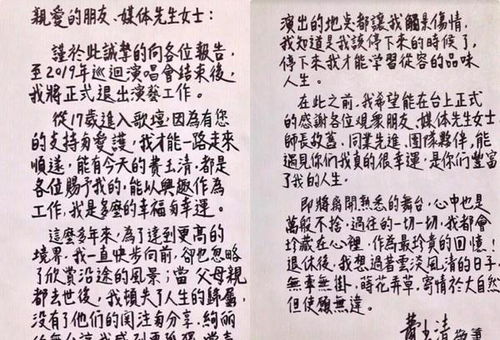 親愛的朋友、媒体先生女士：
謹於此誠摯的向各位報告，
至2019年巡迴演唱會結束後，
我將正式退出演藝工作。
從17歲進入歌壇，因為有您
的支持与愛護，我才能一路走來
順遂，能有今天的費玉清，都是
各位賜予我的，能以興趣作為
工作，我是多麼的幸福与幸運。
這麼多年來，為了達到更高的
境界，我一直快步向前，卻也忽略
了欣賞沿途的風景；當父母親
都去世後，我頓失了人生的歸屬，
沒有了他們的関注与分享，絢麗
演出的地点都讓我觸景傷情，
我知道是我該停下來的時候了，
停下來我才能学習從容的品味
人生。
在此之前，我希望能在台上正式
的感謝各位現衆朋友、媒体先生女士
師長故舊、同業先進、團隊夥伴，能
遇見你們我真的很幸運，是你們豐富
了我的人生。
即將離開熟悉的舞台，心中也是
萬般不捨，過往的一切一切，我都會
珍藏在心裡，作為最珍貴的回憶！
退休後，我想過著雲淡風清的日子，
無事無掛，蒔花弄草，寄情於大自然
但使願無違。
費玉清